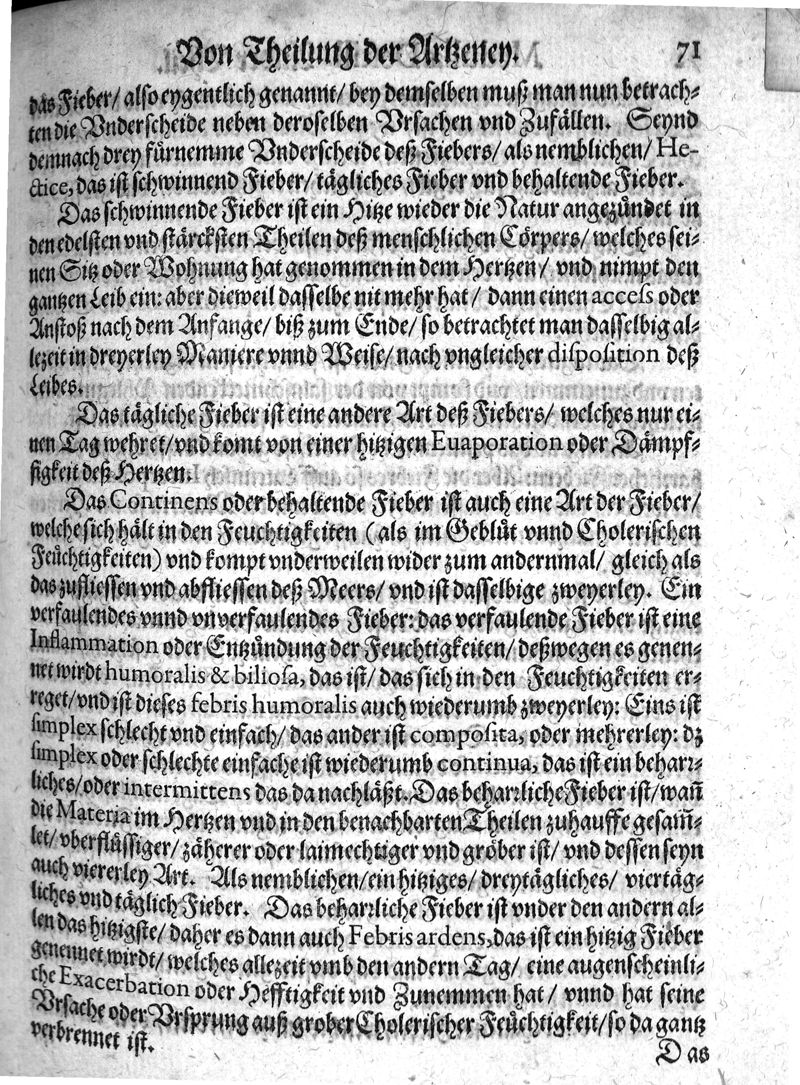 Von Theilung der Artzeney. 71
das Fieber/ also eygentlich genannt/ bey demselben muß man nun betrach-
ten die Vnderscheide neben deroselben Vrsachen vnd Zufällen. Seynd
demnach drey fürnemme Vnderscheide deß Fiebers/ als nemblichen/ He-
ctice, das ist schwinnend Fieber/ tägliches Fieber vnd behaltende Fieber.
Das schwinnende Fieber ist ein Hitze wieder die Natur angezündet in
den edelsten vnd stärcksten Theilen deß menschlichen Cörpers/ welches sei-
nen Sitz oder Wohnung hat genommen in dem Hertzen/ vnd nimpt den
gantzen Leib ein: aber dieweil dasselbe nit mehr hat/ dann einen access oder
Anstoß nach dem Anfange/ biß zum Ende/ so betrachtet man dasselbig al-
lezeit in dreyerley Maniere vnnd Weise/ nach vngleicher disposition deß
Leibes.
Das tägliche Fieber ist eine andere Art deß Fiebers/ welches nur ei-
nen Tag wehret/ vnd komt von einer hitzigen Euaporation oder Dämpf-
figkeit deß Hertzen.
Das Continens oder behaltende Fieber ist auch eine Art der Fieber/
welche sich hält in den Feuchtigkeiten (als im Geblüt vnnd Cholerischen
Feüchtigkeiten) vnd kompt vnderweilen wider zum andernmal/ gleich als
das zufliessen vnd abfliessen deß Meers/ vnd ist dasselbige zweyerley. Ein
verfaulendes vnnd vnverfaulendes Fieber: das verfaulende Fieber ist eine
Inflammation oder Entzündung der Feuchtigkeiten/ deßwegen es genen-
net wirdt humoralis & biliosa, das ist/ das sich in den Feuchtigkeiten er-
reget/ vnd ist dieses febris humoralis auch wiederumb zweyerley: Eins ist
simplex schlecht vnd einfach/ das ander ist composita, oder mehrerley: dz
simplex oder schlechte einfache ist wiederumb continua, das ist ein beharꝛ-
liches/ oder intermittens das da nachläßt. Das beharꝛliche Fieber ist/ wañ
die Materia im Hertzen vnd in den benachbarten Theilen zuhauffe gesam̃-
let/ vberflüssiger/ zäherer oder laimechtiger vnd gröber ist/ vnd dessen seyn
auch viererley Art. Als nemblichen/ ein hitziges/ dreytägliches/ viertäg-
liches vnd täglich Fieber. Das beharꝛliche Fieber ist vnder den andern al-
len das hitzigste/ daher es dann auch Febris ardens, das ist ein hitzig Fieber
genennet wirdt/ welches allezeit vmb den andern Tag/ eine augenscheinli-
che Exacerbation oder Hefftigkeit vnd Zunemmen hat/ vnnd hat seine
Vrsache oder Vrsprung auß grober Cholerischer Feüchtigkeit/ so da gantz
verbrennet ist.
Das